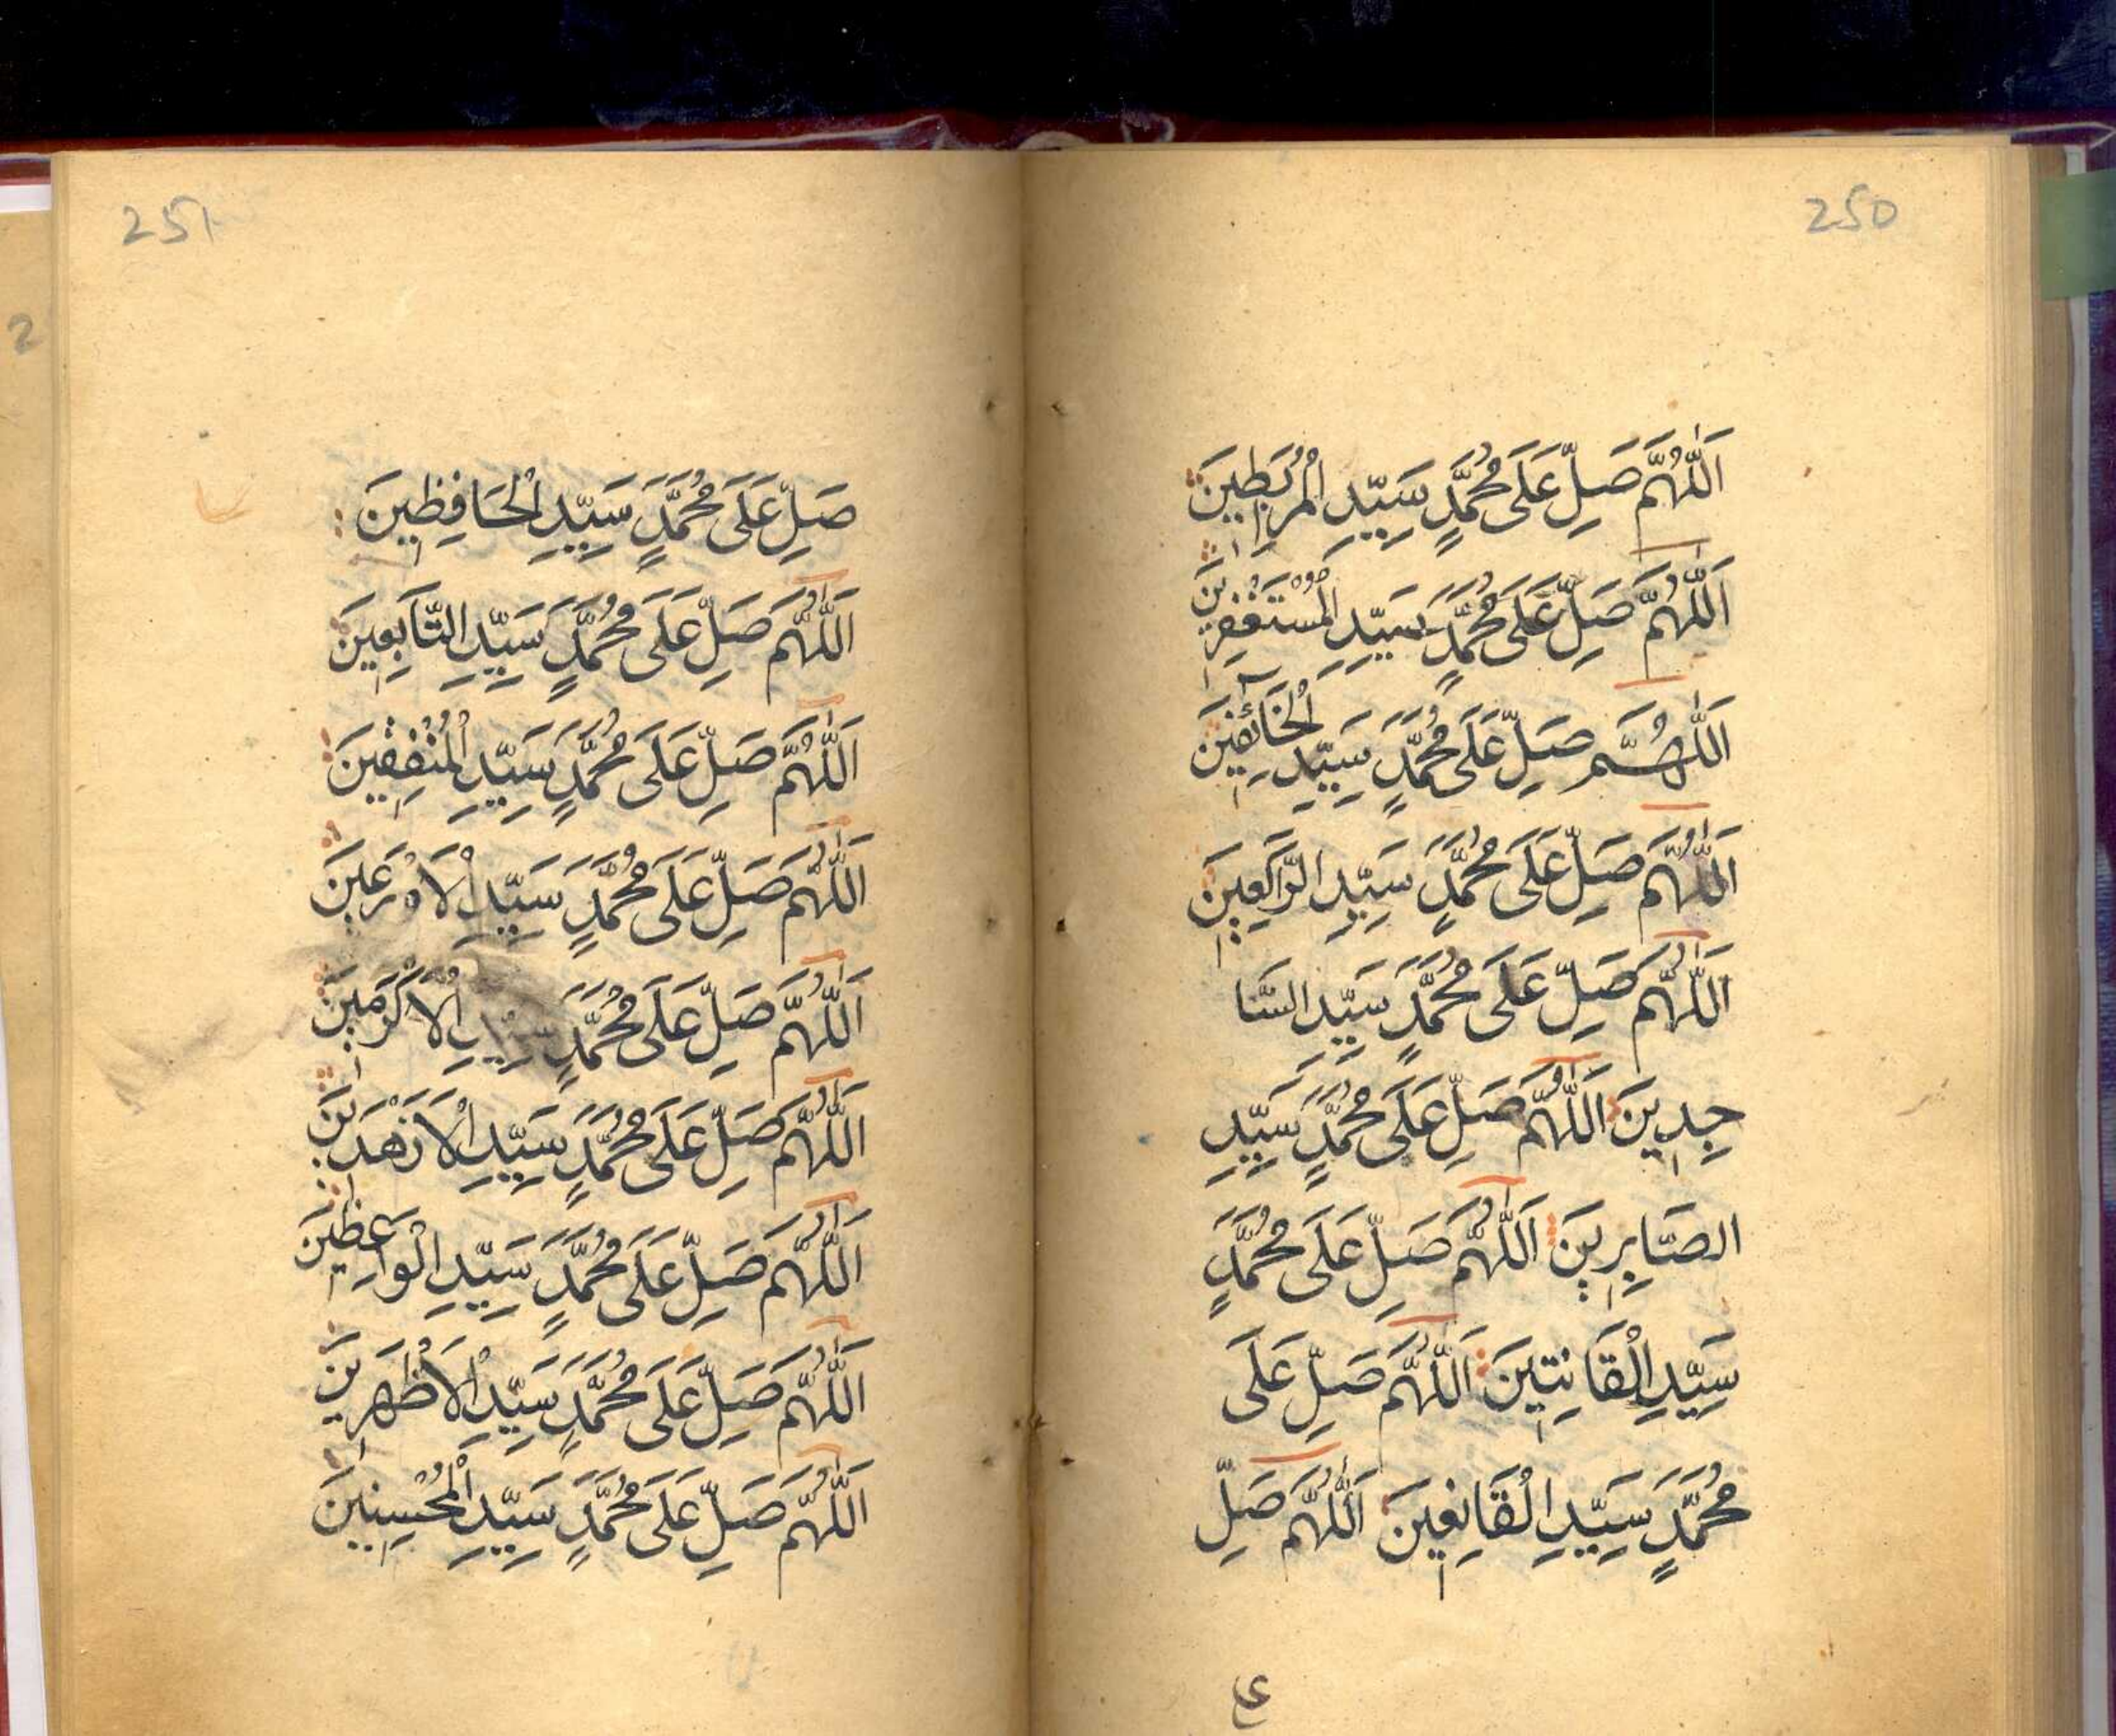 250
اَللّٰهُمَّ صَلِّ عَلَى مُحَمَّدٍ سَيِّدِ الْمُرْبَطِينَ
اَللّٰهُمَّ صَلِّ عَلَى مُحَمَّدٍ سَيِّدِ الْمُسْتَغْفِرِينَ
اَللّٰهُمَّ صَلِّ عَلَى مُحَمَّدٍ سَيِّدِ الْخَائِفِينَ
اَللّٰهُمَّ صَلِّ عَلَى مُحَمَّدٍ سَيِّدِ الرَّاكِعِينَ
اَللّٰهُمَّ صَلِّ عَلَى مُحَمَّدٍ سَيِّدِ السَّا
جِدِينَ اَللّٰهُمَّ صَلِّ عَلَى مُحَمَّدٍ سَيِّدِ
الصَّابِرِينَ اَللّٰهُمَّ صَلِّ عَلَى مُحَمَّدٍ
سَيِّدِ الْقَانِتِينَ اَللّٰهُمَّ صَلِّ عَلَى
مُحَمَّدٍ سَيِّدِ الْقَانِعِينَ اَللّٰهُمَّ صَلِّ
251
صَلِّ عَلَى مُحَمَّدٍ سَيِّدِ الْحَافِظِينَ
اَللّٰهُمَّ صَلِّ عَلَى مُحَمَّدٍ سَيِّدِ التَّابِعِينَ
اَللّٰهُمَّ صَلِّ عَلَى مُحَمَّدٍ سَيِّدِ الْمُنْفِقِينَ
اَللّٰهُمَّ صَلِّ عَلَى مُحَمَّدٍ سَيِّدِ الْاَوْرَعِينَ
اَللّٰهُمَّ صَلِّ عَلَى مُحَمَّدٍ سَيِّدِ الْاَكْرَمِينَ
اَللّٰهُمَّ صَلِّ عَلَى مُحَمَّدٍ سَيِّدِ الْاَزْهَدِينَ
اَللّٰهُمَّ صَلِّ عَلَى مُحَمَّدٍ سَيِّدِ الْوَاعِظِينَ
اَللّٰهُمَّ صَلِّ عَلَى مُحَمَّدٍ سَيِّدِ الْاَظْهَرِينَ
اَللّٰهُمَّ صَلِّ عَلَى مُحَمَّدٍ سَيِّدِ الْمُحْسِنِينَ